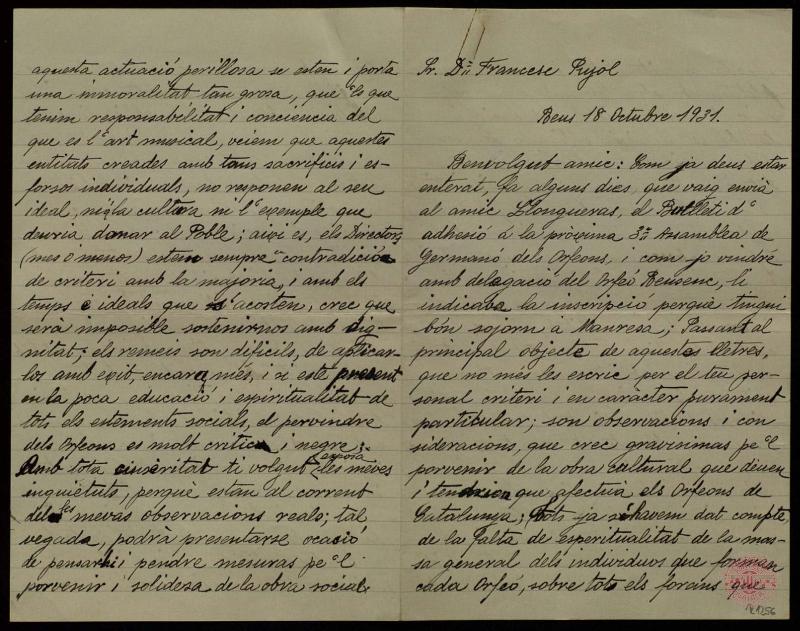 Sr. Dn Francesc Pujol
Reus 18 Octubre 1931.
Benvolgut amic: Com ja deus estar
enterat, fa alguns dies, que vaig enviá
al amic Llongueras, el Butlletí d'
adhesió á la próxima 3ª Assamblea de
Germanó dels Orfeons, i com jo vindré
amb delagació del Orfeó Reusenc, li
indicaba la inscripció perquè tingui
bón sojorn a Manresa; Passant al
principal objecte de aquestes lletres,
que no mes les escric per el teu per-
sonal criteri i en caracter purament
particular; son observacions i con
sideracions, que crec gravisimas pe'l
porvenir de la obra cultural que deuen
i tendrien que afectuia els Orfeons de
Catalunya; Tots ja s'havem dat compte,
de la falta de Esperitualitat de la mas-
sa general dels individuos que forman
cada Orfeó, sobre tots els forans que
aquesta actuació perillosa se esten i porta
una inmoralitat tan grosa, que els que
tenim responsabilitat i conciencia del
que es l'art musical, veiem que aquestes
entitats creades amb tans sacrificis i es-
forsos individuals, no responen al seu
ideal, ni a la cultura ni l'exemple que
deuria donar al Poble; aixi es, els Directors
(mes o menos) estem sempre contradicción
de criteri amb la majoria, i amb els
temps e ideals que s'acosten, crec que
será imposible sostenirnos amb dig-
nitat; els remeis son dificils, de aplicar-
los amb exit, encara més, i si este present
en la poca educació i espiritualitat de
tots els estements socials, el pervindre
dels Orfeons es molt critica i negre;
Amb tota sinceritat ti volgut exposá les meves
inquietuts, perquè estan al corrent
de les mevas observacions reals; tal
vegada, podrá presentarse ocació
de pensarhi i pendre mesuras pe'l
porvenir i solidesa de la obra social.
1R1256